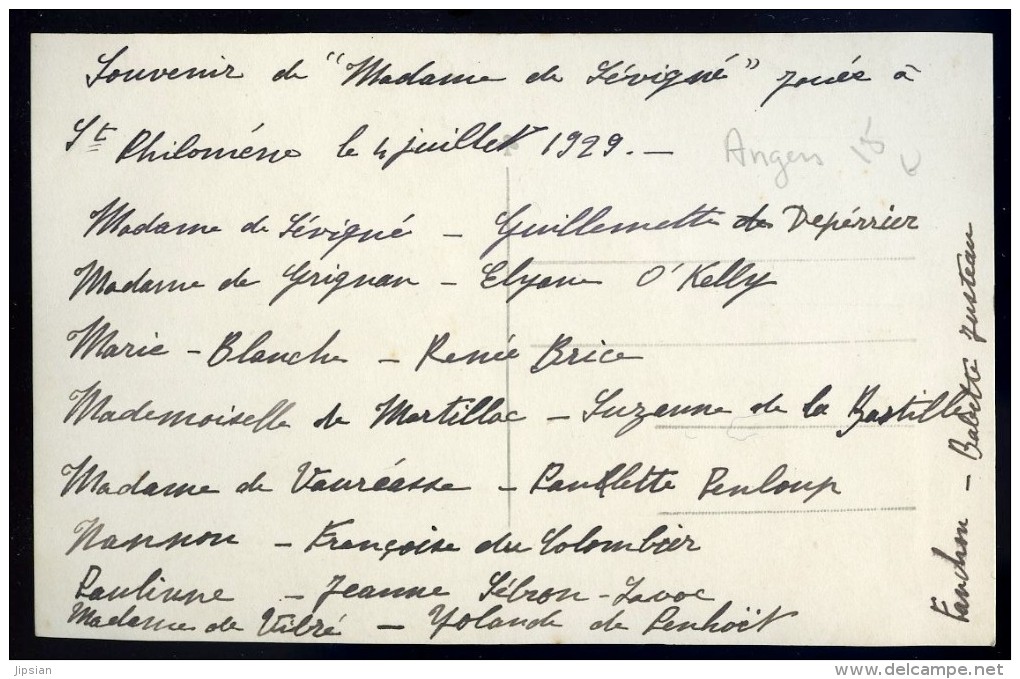 Souvenir de "Madame de Sévigné" jouée à
St Philomène le 4 juillet 1929. —
Angers
Madame de Sévigné — Guillemette de Depérrier
Madame de Grignan — Elyane O'Kelly
Marie-Blanche — Renée Brice
Mademoiselle de Martillac — Suzanne de la Bastille
Madame de Vauréasse — Paullette Penloup
Nannon — Françoise du Colombier
Paulinne — Jeanne Sébron-Lavoc
Madame de Vitré — Yolande de Penhoët
Fanchon — Babette Justeau
jipsian
www.delcampe.net